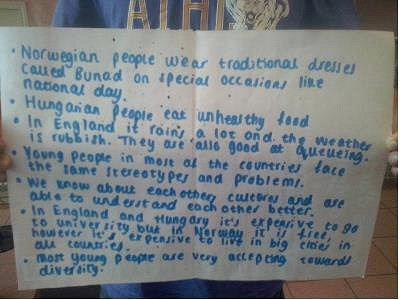 ATHL
• Norwegian people wear traditional dresses
called Bunad on special occasions like
national day.
• Hungarian people eat unhealthy food
• In England it rains a lot and the weather
is rubbish. They are also good at queueing.
• Young people in most of the countries face
the same stereotypes and problems.
• We know about each others cultures and are
able to understand each other better.
• In England and Hungary it's expensive to go
to university but in Norway it is free,
however it's expensive to live in big cities in
all countries.
• Most young people are very accepting towards
diversity.